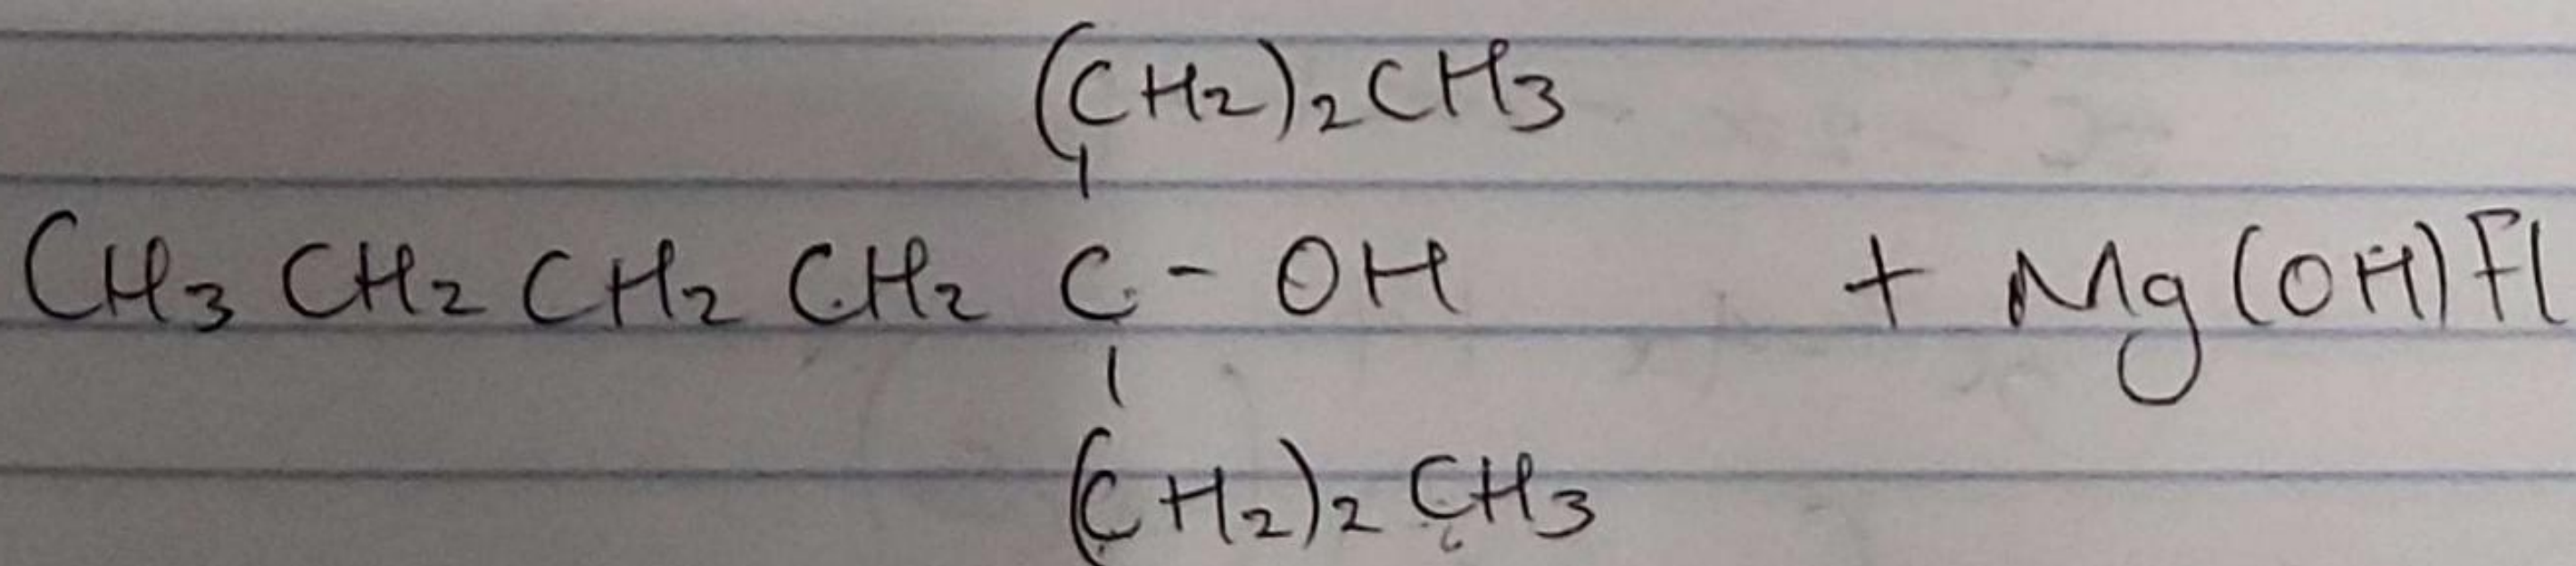 (CH2)2CH3
CH3 CH2 CH2 CH2 C - OH + Mg(OH)Fl
(CH2)2 CH3